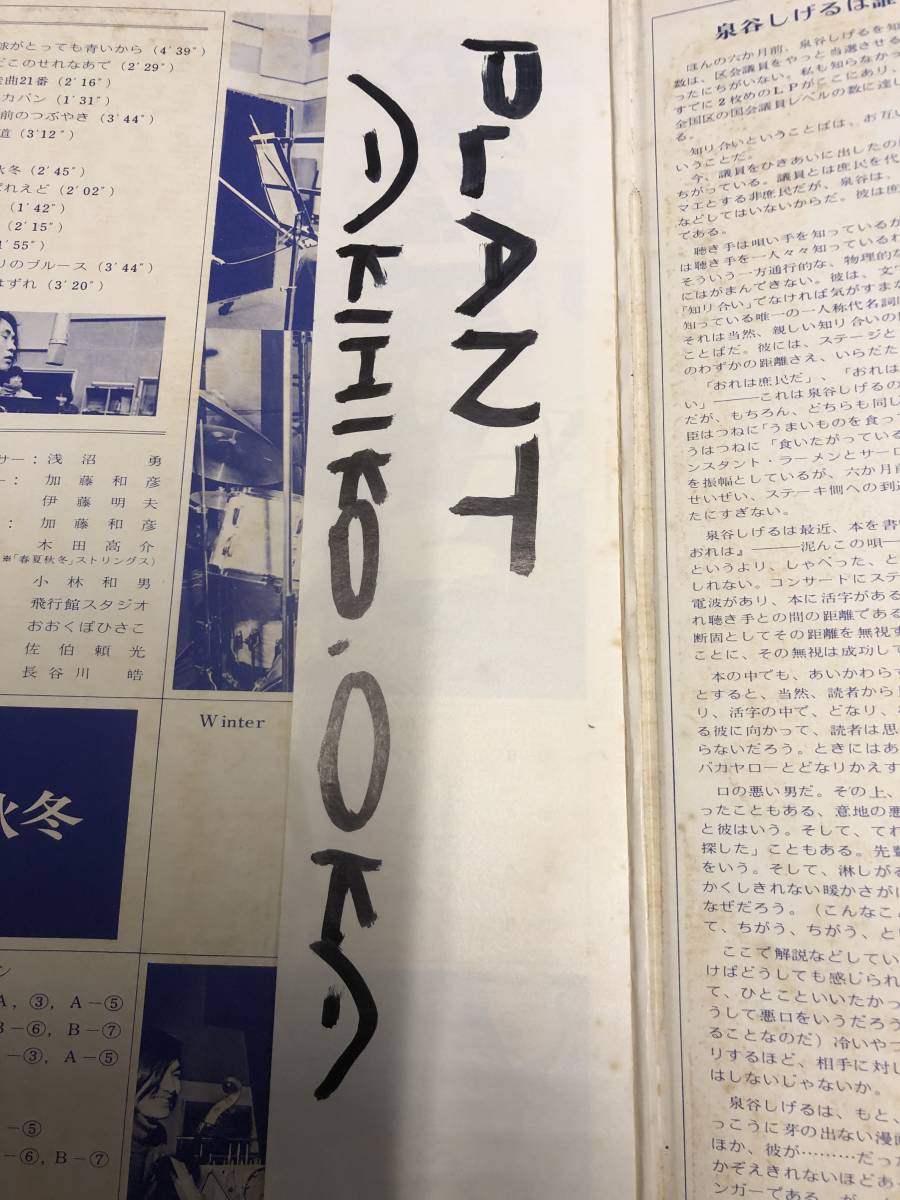 球がとっても青いから (4′39″)
だこのせれなあで (2′29″)
曲21番 (2′16″)
カバン (1′31″)
前のつぶやき (3′44″)
道 (3′12″)
秋冬 (2′45″)
ばれえど (2′02″)
(1′42″)
(2′15″)
1′55″)
りのブルース (3′44″)
はずれ (3′20″)
サー：浅沼　勇
ー：加藤和彦
伊藤明夫
：加藤和彦
木田高介
※「春夏秋冬」ストリングス)
小林和男
飛行館スタジオ
おおくぼひさこ
佐伯頼光
長谷川　皓
Winter
秋冬
ン
A, ③, A−⑤
B−⑥, B−⑦
−③, A−⑤
−⑤
−⑥, B−⑦
PLANT
泉谷しげるは誰
ほんの六か月前、泉谷しげるを知
数は、区会議員をやっと当選させる
ったにちがいない。私も知らなかっ
すでに2枚めのLPがここにあり、
全国区の国会議員レベルの数に達し
る。
知り合いということばは、お互い
いうことだ。
今、議員をひきあいに出したのは
ちがっている。議員とは庶民を代
マエとする非庶民だが、泉谷は、
などしてはいないからだ。彼は庶
である。
聴き手は唄い手を知っているが
は聴き手を一人々々知っているわ
そういう一方通行的な、物理的な
にはがまんできない。彼は、文
「知り合い」でなければ気がすまな
知っている唯一の一人称代名詞
それは当然、親しい知り合いの
ことばだ。彼には、ステージと
のわずかの距離さえ、いらだた
「おれは庶民だ」、「おれは
い」―――これは泉谷しげるの
だが、もちろん、どちらも同じ
臣はつねに「うまいものを食っ
うはつねに「食いたがっている
ンスタント・ラーメンとサーロ
を振幅としているが、六か月前
せいぜい、ステーキ側への到達
たにすぎない。
泉谷しげるは最近、本を書
おれは』―――泥んこの唄―
というより、しゃべった、と
しれない。コンサートにステ
電波があり、本に活字がある
れ聴き手との間の距離である
断固としてその距離を無視す
ことに、その無視は成功して
本の中でも、あいかわらず
とすると、当然、読者から
り、活字の中で、どなり、
る彼に向かって、読者は思
らないだろう。ときにはあ
バカヤローとどなりかえす
口の悪い男だ。その上、
ったこともある、意地の悪
と彼はいう。そして、てれ
探した」こともある。先輩
をいう。そして、淋しがる
かくしきれない暖かさが
なぜだろう。（こんなこと
て、ちがう、ちがう、とい
ここで解説などしてい
けばどうしても感じられ
て、ひとこといいたかっ
うして悪口をいうだろう
ることなのだ）冷いやつ
リするほど、相手に対し
はしないじゃないか。
泉谷しげるは、もと、
っこうに芽の出ない漫画
ほか、彼が………だった
かぞえきれないほどあ
ンガーである。